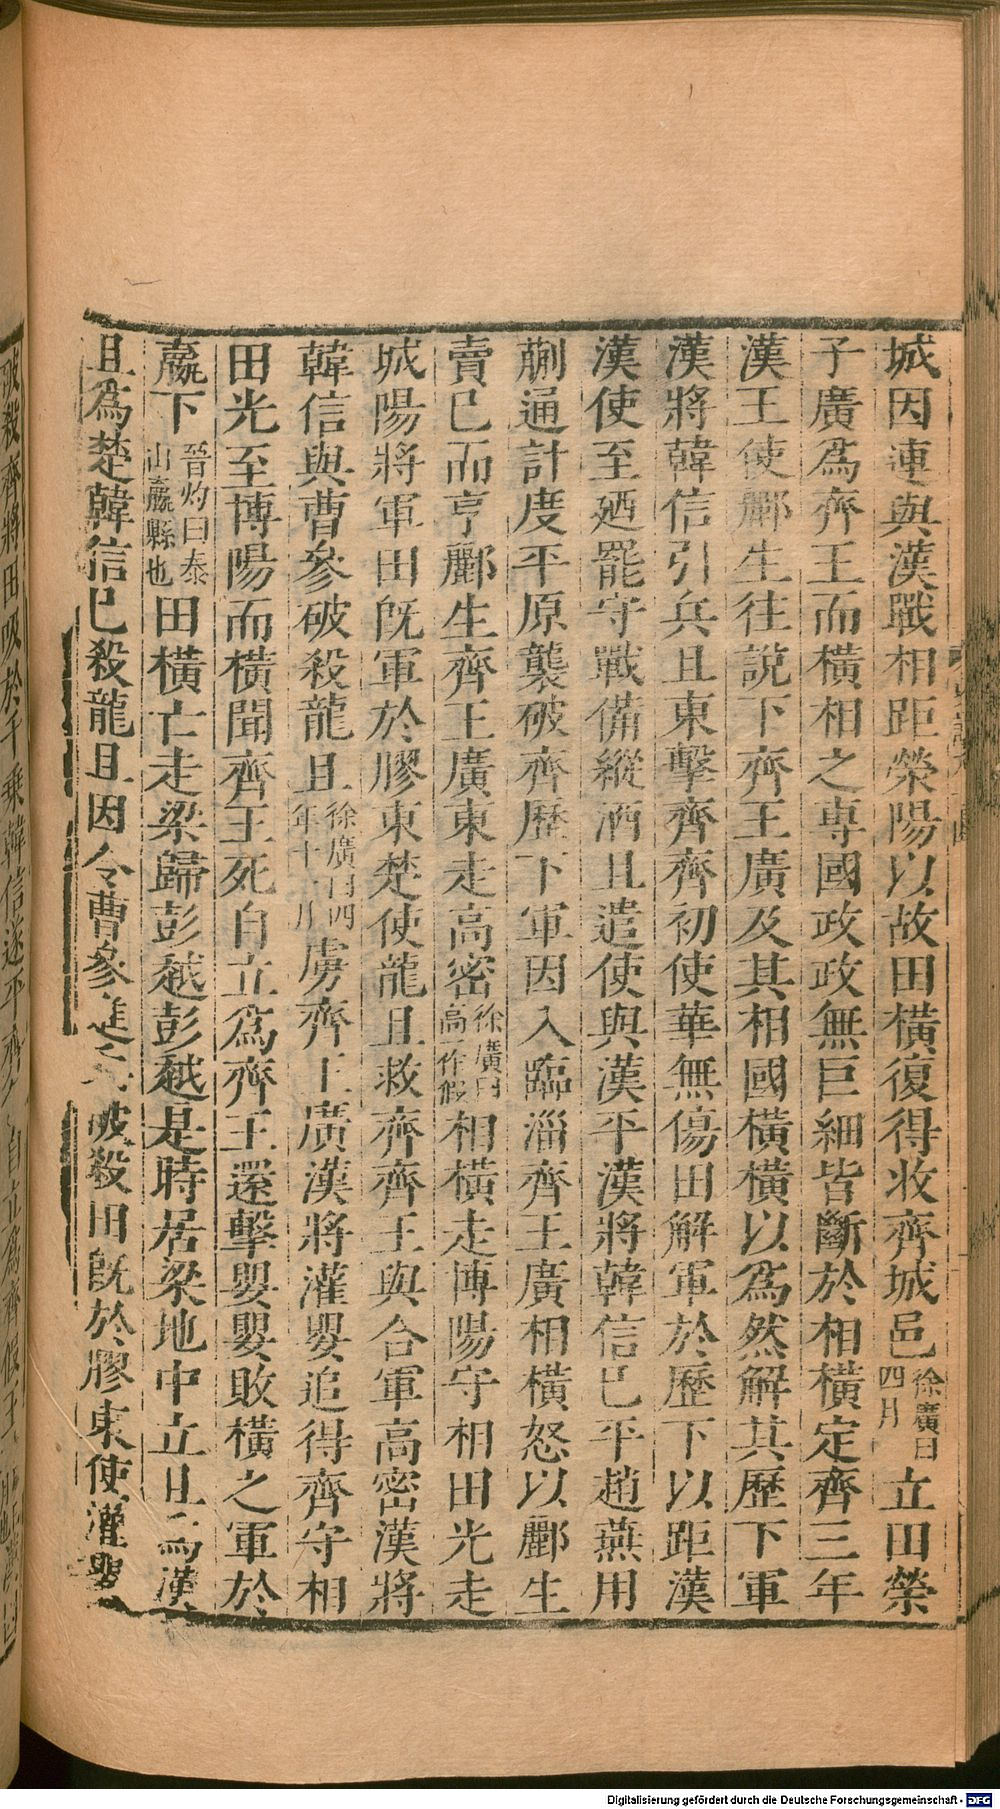 城因連與漢戰相距滎陽以故田橫復得收齊城邑徐廣曰四月立田榮
子廣爲齊王而橫相之專國政政無巨細皆斷於相橫定齊三年
漢王使酈生往說下齊王廣及其相國橫橫以爲然解其歷下軍
漢將韓信引兵且東擊齊齊初使華無傷田解軍於歷下以距漢
漢使至廼罷守戰備縱酒且遣使與漢平漢將韓信已平趙燕用
蒯通計度平原襲破齊歷下軍因入臨淄齊王廣相橫怒以酈生
賣已而亨酈生齊王廣東走高密徐廣曰高一作假相橫走博陽守相田光走
城陽將軍田旣軍於膠東楚使龍且救齊齊王與合軍高密漢將
韓信與曹參破殺龍且徐廣曰四年十一月虜齊王廣漢將灌嬰追得齊守相
田光至博陽而橫聞齊王死自立爲齊王還擊嬰嬰敗橫之軍於
嬴下晉灼曰泰山嬴縣也田橫亡走梁歸彭越彭越是時居梁地中立且爲漢
且爲楚韓信已殺龍且因令曹參進兵破殺田旣於膠東使灌嬰
破殺齊將田吸於千乘韓信遂平齊自立爲齊假王
Digitalisierung gefördert durch die Deutsche Forschungsgemeinschaft - DFG